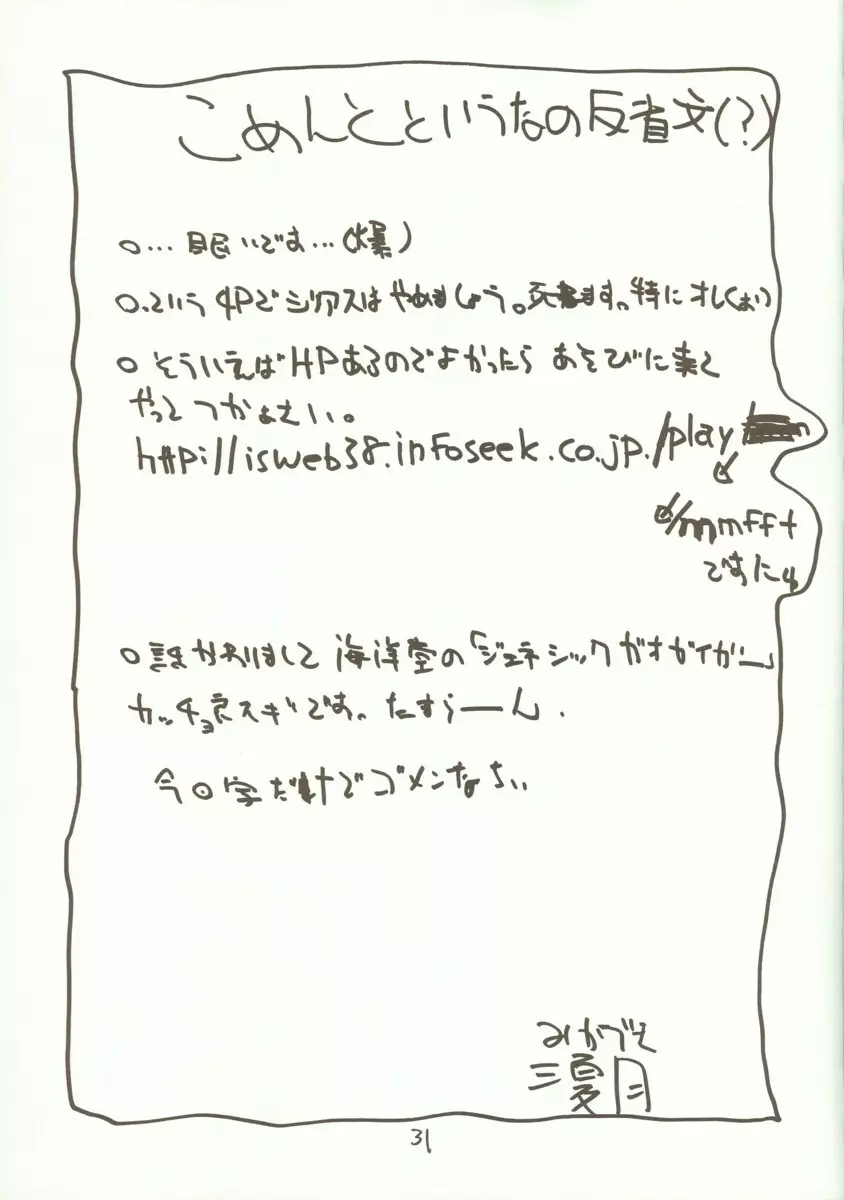 こめんとというなの反省文(?)
○…眠いです…(爆)
○.という4Pでジアスはやめましょう。死ねます。特にオレ(おい)
○そういえばHPあるのでよかったらあそびに来て
やってつかぁさい。
http://isweb38.infoseek.co.jp./play
/mmfft
ですにゅ
○誰かわりまして海洋堂の「ジェネシックガオガイガー」
カッチョ良スギです。たすらーん.
今回字だけでゴメンなさい
みかづき
三夏月
31